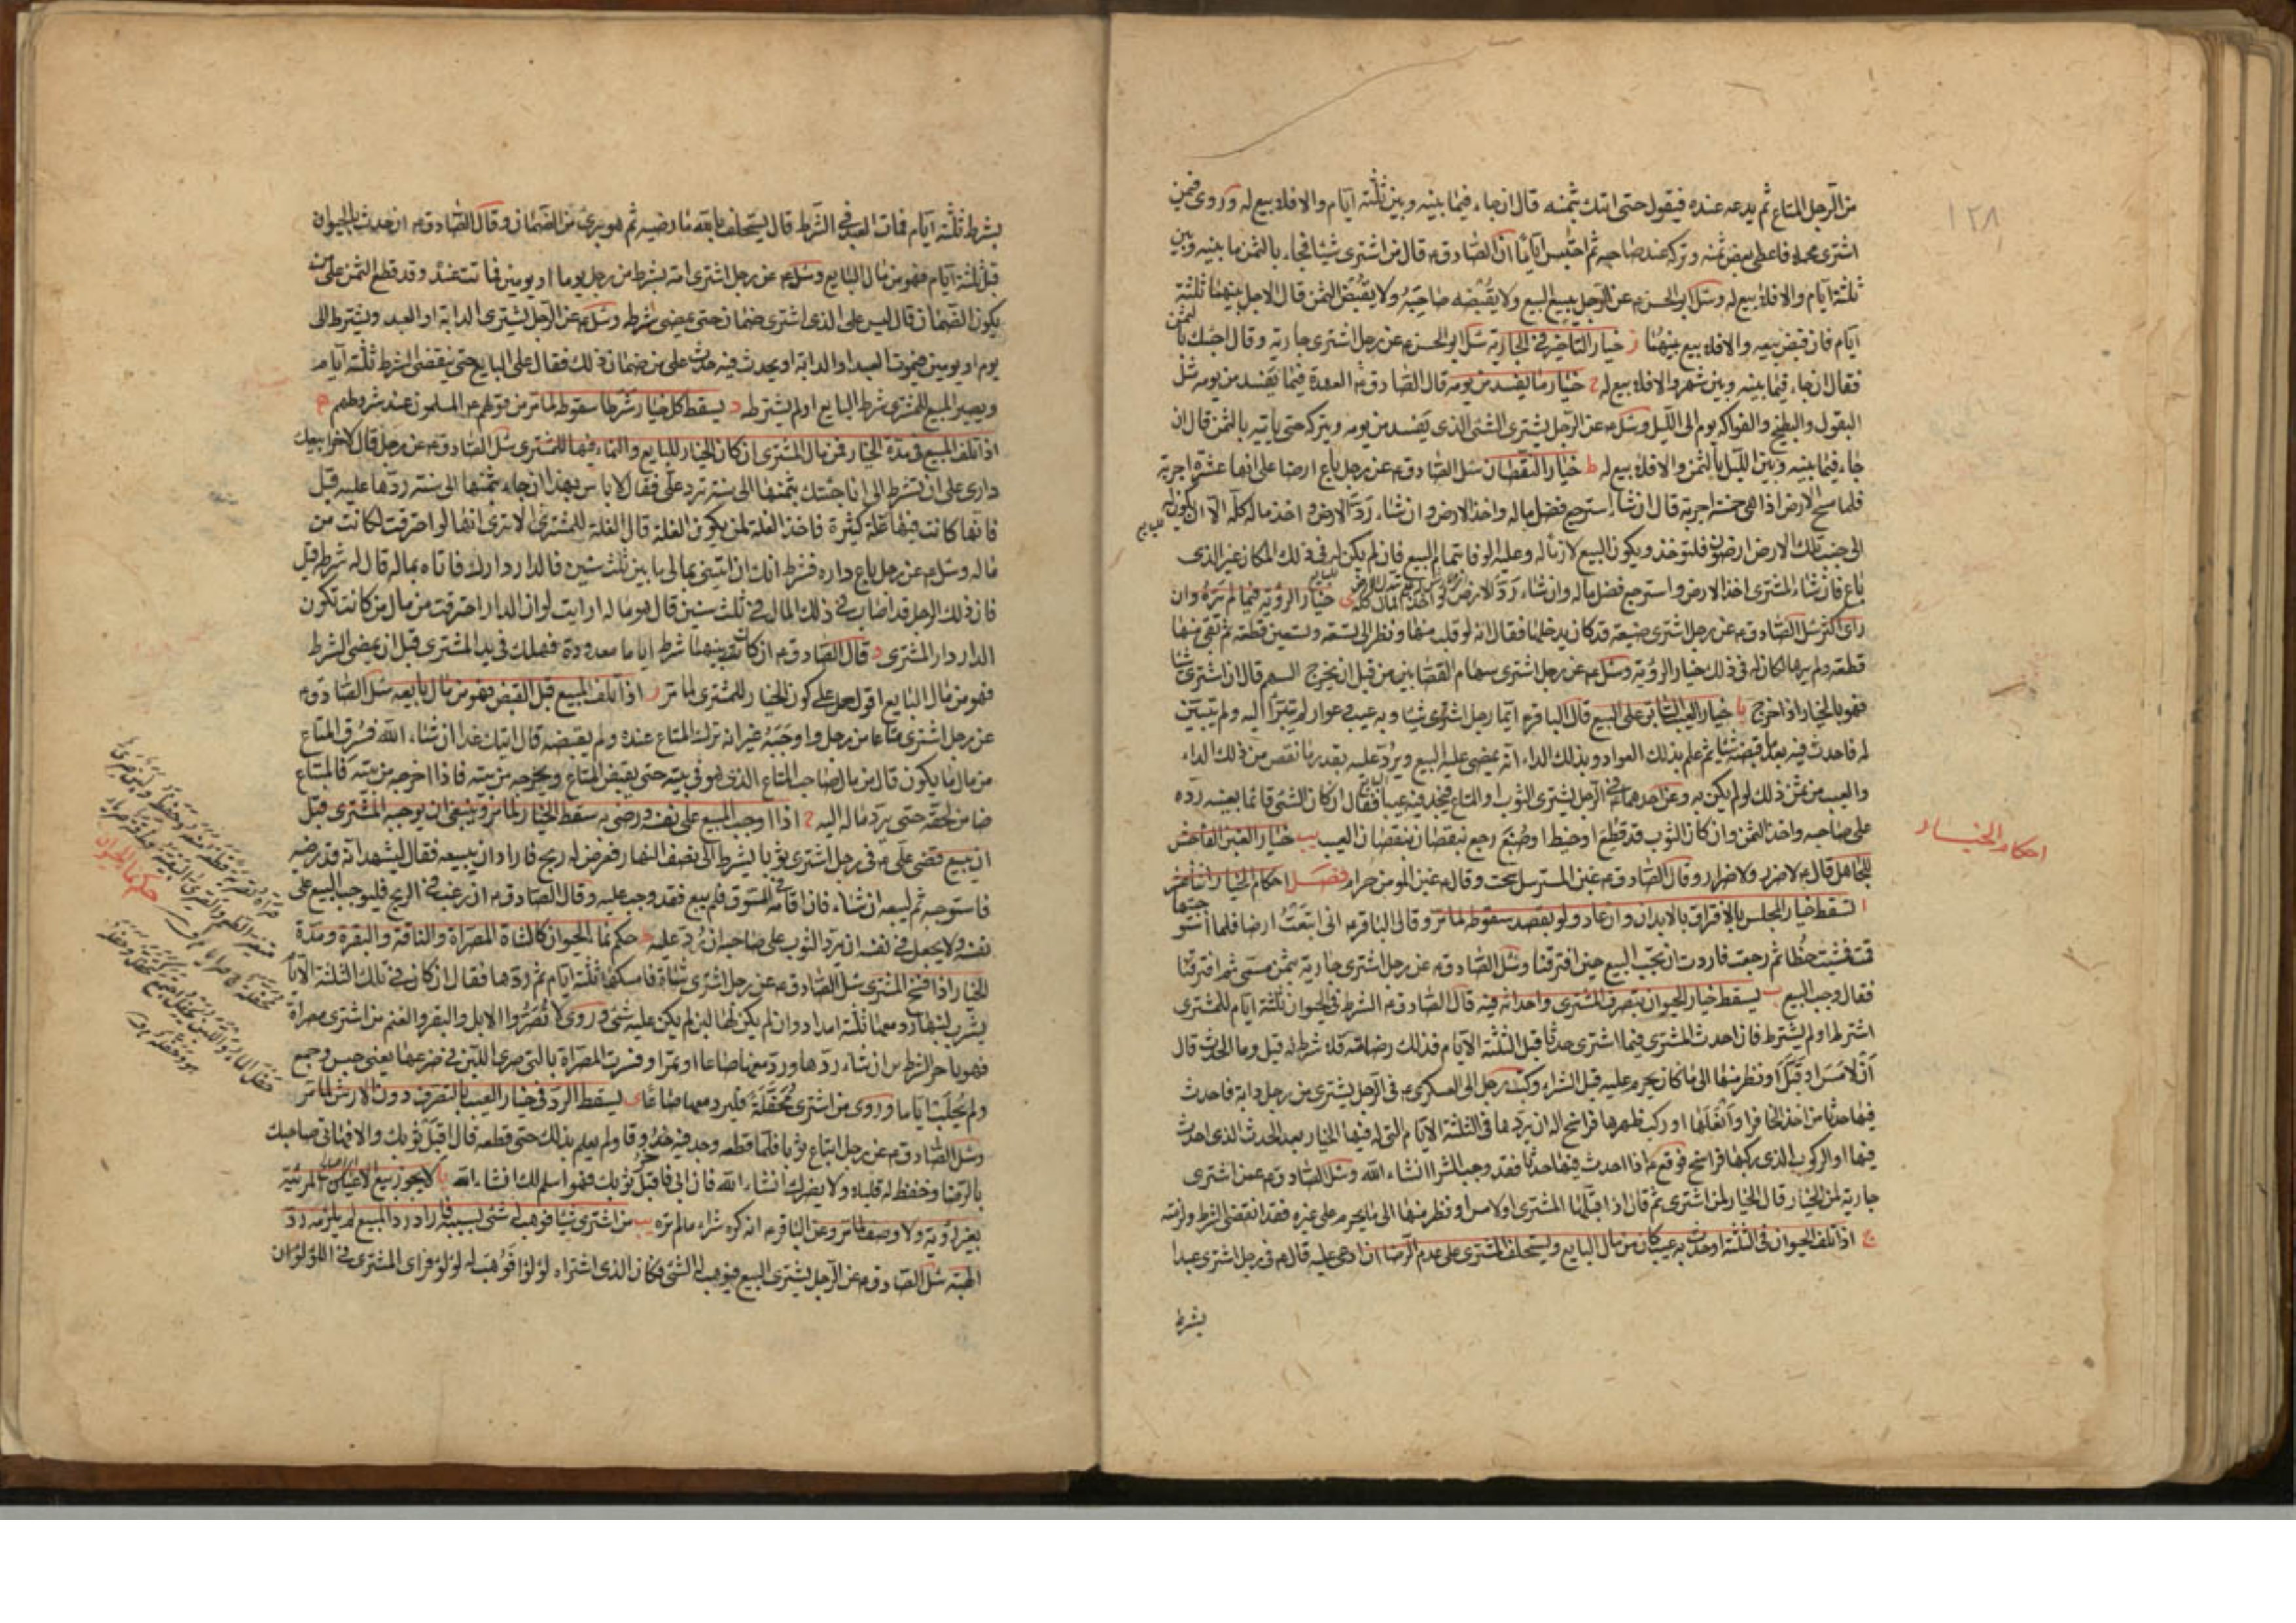 ١٢٨
من الرجل المتاع ثم يدعه عنده فيقول حتى اتيك بثمنه قال ان جاء فيما بينه وبين ثلثة ايام والا فلا بيع له وروى فيمن
اشترى محملا فاعطى بعض ثمنه وتركه عند صاحبه ثم احتبس اياما ان الصادق ع قال من اشترى شيئا فجاء بالثمن ما بينه وبين
ثلثة ايام والا فلا بيع له وسئل ابو الحسن ع عن الرجل يبيع البيع ولا يقبضه صاحبه ولا يقبض الثمن قال الاجل بينهما ثلثة
ايام فان قبض بيعه والا فلا بيع بينهما ز خيار التاخير فى الجارية سئل ابو الحسن ع عن رجل اشترى جارية وقال اجيئك بالثمن
فقال ان جاء فيما بينه وبين شهر والا فلا بيع له ح خيار ما يفسد من يومه قال الصادق ع العهدة فيما يفسد من يومه مثل
البقول والبطيخ والفواكه يوم الى الليل وسئل ع عن الرجل يشترى الشئ الذى يفسد من يومه ويتركه حتى ياتيه بالثمن قال ان
جاء فيما بينه وبين الليل بالثمن والا فلا بيع له ط خيار النقصان سئل الصادق ع عن رجل باع ارضا على انها عشرة اجربة
فلما مسح الارض اذا هى خمسة اجربة قال ان شاء استرجع فضل ماله واخذ الارض وان شاء رد الارض واخذ ماله كله الا ان يكون له
الى جنب تلك الارض ارضون فلتوخذ ويكون البيع لازما له وعليه الوفاء بتمام البيع فان لم يكن له فى ذلك المكان غير الذى
باع فان شاء المشترى اخذ الارض واسترجع فضل ماله وان شاء رد الارض واخذ المال كله ى خيار الرؤية فيما لم يره وان
راى اكثر سئل الصادق ع عن رجل اشترى ضيعة قد كان يدخلها فقال انه لو قلب منها ونظر الى تسعة وتسعين قطعة ثم بقى منها
قطعة ولم يرها لكان له فى ذلك خيار الرؤية وسئل ع عن رجل اشترى سهام القصابين من قبل ان يخرج السهم قال ان اشترى شيئا
فهو بالخيار اذا خرج يا خيار العيب السابق على البيع قال الباقر ع ايما رجل اشترى شيئا وبه عيب وعوار لم يتبرأ اليه ولم يتبين
له فاحدث فيه بعد ما قبضه شيئا ثم علم بذلك العوار وبذلك الداء انه يمضى عليه البيع ويرد عليه بقدر ما نقص من ذلك الداء
والعيب من ثمن ذلك لو لم يكن به وعن احدهما ع فى الرجل يشترى الثوب او المتاع فيجد فيه عيبا فقال ان كان الشئ قائما بعينه رده
على صاحبه واخذ الثمن وان كان الثوب قد قطع او خيط او صبغ رجع بنقصان العيب يب خيار الغبن الفاحش
للجاهل قال ع لا ضرر ولا ضرار وقال الصادق ع غبن المسترسل سحت وقال ع غبن المومن حرام فصل احكام الخيار اثنا عشر
ا يسقط خيار المجلس بالافتراق بالابدان وان عاد ولو بقصد سقوطه لما مر وقال الباقر ع انى ابتعت ارضا فلما استوجبتها
قمت فمشيت خطا ثم رجعت فاردت ان يجب البيع حين افترقنا وسئل الصادق ع عن رجل اشترى جارية بثمن مسمى ثم افترقا
فقال وجب البيع ب يسقط خيار الحيوان بتصرف المشترى واحداثه فيه قال الصادق ع الشرط فى الحيوان ثلثة ايام للمشترى
اشترط ام لم يشترط فان احدث المشترى فيما اشترى حدثا قبل الثلثة الايام فذلك رضا منه فلا شرط له قيل وما الحدث قال
ان لامس او قبل او نظر منها الى ما كان يحرم عليه قبل الشراء وكتب رجل الى العسكرى ع فى الرجل يشترى من رجل دابة فاحدث
فيها حدثا من اخذ الحافر او انعلها او ركب ظهرها فراسخ اله ان يردها فى الثلثة الايام التى له فيها الخيار بعد الحدث الذى احدث
فيها او الركوب الذى يركبها فراسخ فوقع ع اذا احدث فيها حدثا فقد وجب الشرا انشاء الله وسئل الصادق ع عمن اشترى
جارية لمن الخيار قال الخيار لمن اشترى ثم قال اذا قبلها المشترى او لامس او نظر منها الى ما يحرم على غيره فقد انقضى الشرط ولزمته
ج اذا تلف الحيوان فى الثلثة او حدث به عيب كان من مال البايع ويستحلف المشترى على عدم الرضا ان ادعى عليه قال ع فى رجل اشترى عبدا
بشرط
احكام الخيار
بشرط ثلثة ايام فمات العبد فى الشرط قال يستحلف بالله ما رضيه ثم هو برئ من الضمان وقال الصادق ع ان حدث بالحيوان
قبل ثلثة ايام فهو من مال البايع وسئل ع عن رجل اشترى امة بشرط من رجل يوما او يومين فماتت عنده وقد قطع الثمن على من
يكون الضمان قال ليس على الذى اشترى ضمان حتى يمضى شرطه وسئل ع عن الرجل يشترى الدابة او العبد ويشترط الى
يوم او يومين فيموت العبد او الدابة او يحدث فيه حدث على من ضمان ذلك فقال على البايع حتى ينقضى الشرط ثلثة ايام
ويصير المبيع للمشترى شرط البايع او لم يشترطه د يسقط كل خيار شرطا سقوطه لما مر من قولهم ع المسلمون عند شروطهم ه
اذا تلف المبيع فى مدة الخيار فمن مال المشترى ان كان الخيار للبايع والنماء فيها للمشترى سئل الصادق ع عن رجل قال لاخر ابيعك
دارى على ان تشرط لى ان انا جئتك بثمنها الى سنة ترد على فقال لا باس بهذا ان جاء بثمنها الى سنة ردها عليه قيل
فانها كانت فيها غلة كثيرة فاخذ الغلة لمن يكون الغلة قال الغلة للمشترى الا ترى انها لو احترقت لكانت من
ماله وسئل ع عن رجل باع داره فشرط انك ان اتيتنى بمالى ما بين ثلث سنين فالدار دارك فاتاه بماله قال له شرطه قيل
فان ذلك الرجل قد اصاب فى ذلك المال فى ثلث سنين قال هو ماله ارايت لو ان الدار احترقت من مال من كانت تكون
الدار دار المشترى و قال الصادق ع ان كان بينهما شرط اياما معدودة فهلك فى يد المشترى قبل ان يمضى الشرط
فهو من مال البايع اقول حمل على كون الخيار للمشترى لما مر ز اذا تلف المبيع قبل القبض فهو من مال بايعه سئل الصادق ع
عن رجل اشترى متاعا من رجل واوجبه غير انه ترك المتاع عنده ولم يقبضه قال اتيك غدا ان شاء الله فسرق المتاع
من مال من يكون قال من مال صاحب المتاع الذى هو فى بيته حتى يقبض المتاع ويخرجه من بيته فاذا اخرجه من بيته فالمبتاع
ضامن لحقه حتى يرد ماله اليه ح اذا اوجب المبيع على نفسه ورضى به سقط الخيار لما مر وينبغى ان يوجبه المشترى قبل
ان يبيع فقضى على ع فى رجل اشترى ثوبا بشرط الى نصف النهار فعرض له ربح فاراد ان يبيعه فقال ليشهد انه قد رضيه
فاستوجبه ثم ليبعه ان شاء فان اقامه فى السوق فلم يبع فقد وجب عليه وقال الصادق ع ان رغب فى الربح فليوجب البيع على
نفسه ولا يجعل فى نفسه ان يرد الثوب على صاحبه ان رد عليه ط حكم نما الحيوان كالشاة المصراة والناقة والبقرة ومدة
الخيار اذا فسخ المشترى سئل الصادق ع عن رجل اشترى شاة فامسكها ثلثة ايام ثم ردها فقال ان كان فى تلك الثلثة الايام
يشرب لبنها رد معها ثلثة امداد وان لم يكن لها لبن لم يكن عليه شئ وروى لا تصروا الابل والبقر والغنم من اشترى مصراة
فهو باخر النظرين ان شاء ردها ورد معها صاعا من تمر وفسرت المصراة بالتى صرى اللبن فى ضرعها يعنى حبس وجمع
ولم يحلب اياما وروى من اشترى محفلة فليرد معها صاعا ى يسقط الرد فى خيار العيب بالتصرف دون الارش لما مر
وسئل الصادق ع عن رجل ابتاع ثوبا فلما قطعه وجد فيه خروقا ولم يعلم بذلك حتى قطعه قال اقبل ثوبك والا فهات صاحبك
بالرضا وخفض له قليلا ولا يضرك انشاء الله فان ابى فاقبل ثوبك فهو اسلم لك انشاء الله يا لا يجوز بيع الاعيان المرئية
بغير رؤية ولا وصف لما مر وعن الباقر ع انه كره شراء ما لم تره يب من اشترى شيئا فوهب له شئ بسببه فاراد رد المبيع لم يلزمه رد
الهبة سئل الصادق ع عن الرجل يشترى البيع فيوهب له الشئ فكان الذى اشتراه لؤلؤا فوهب له لؤلؤ فراى المشترى فى اللؤلؤ ان
حكم نما الحيوان